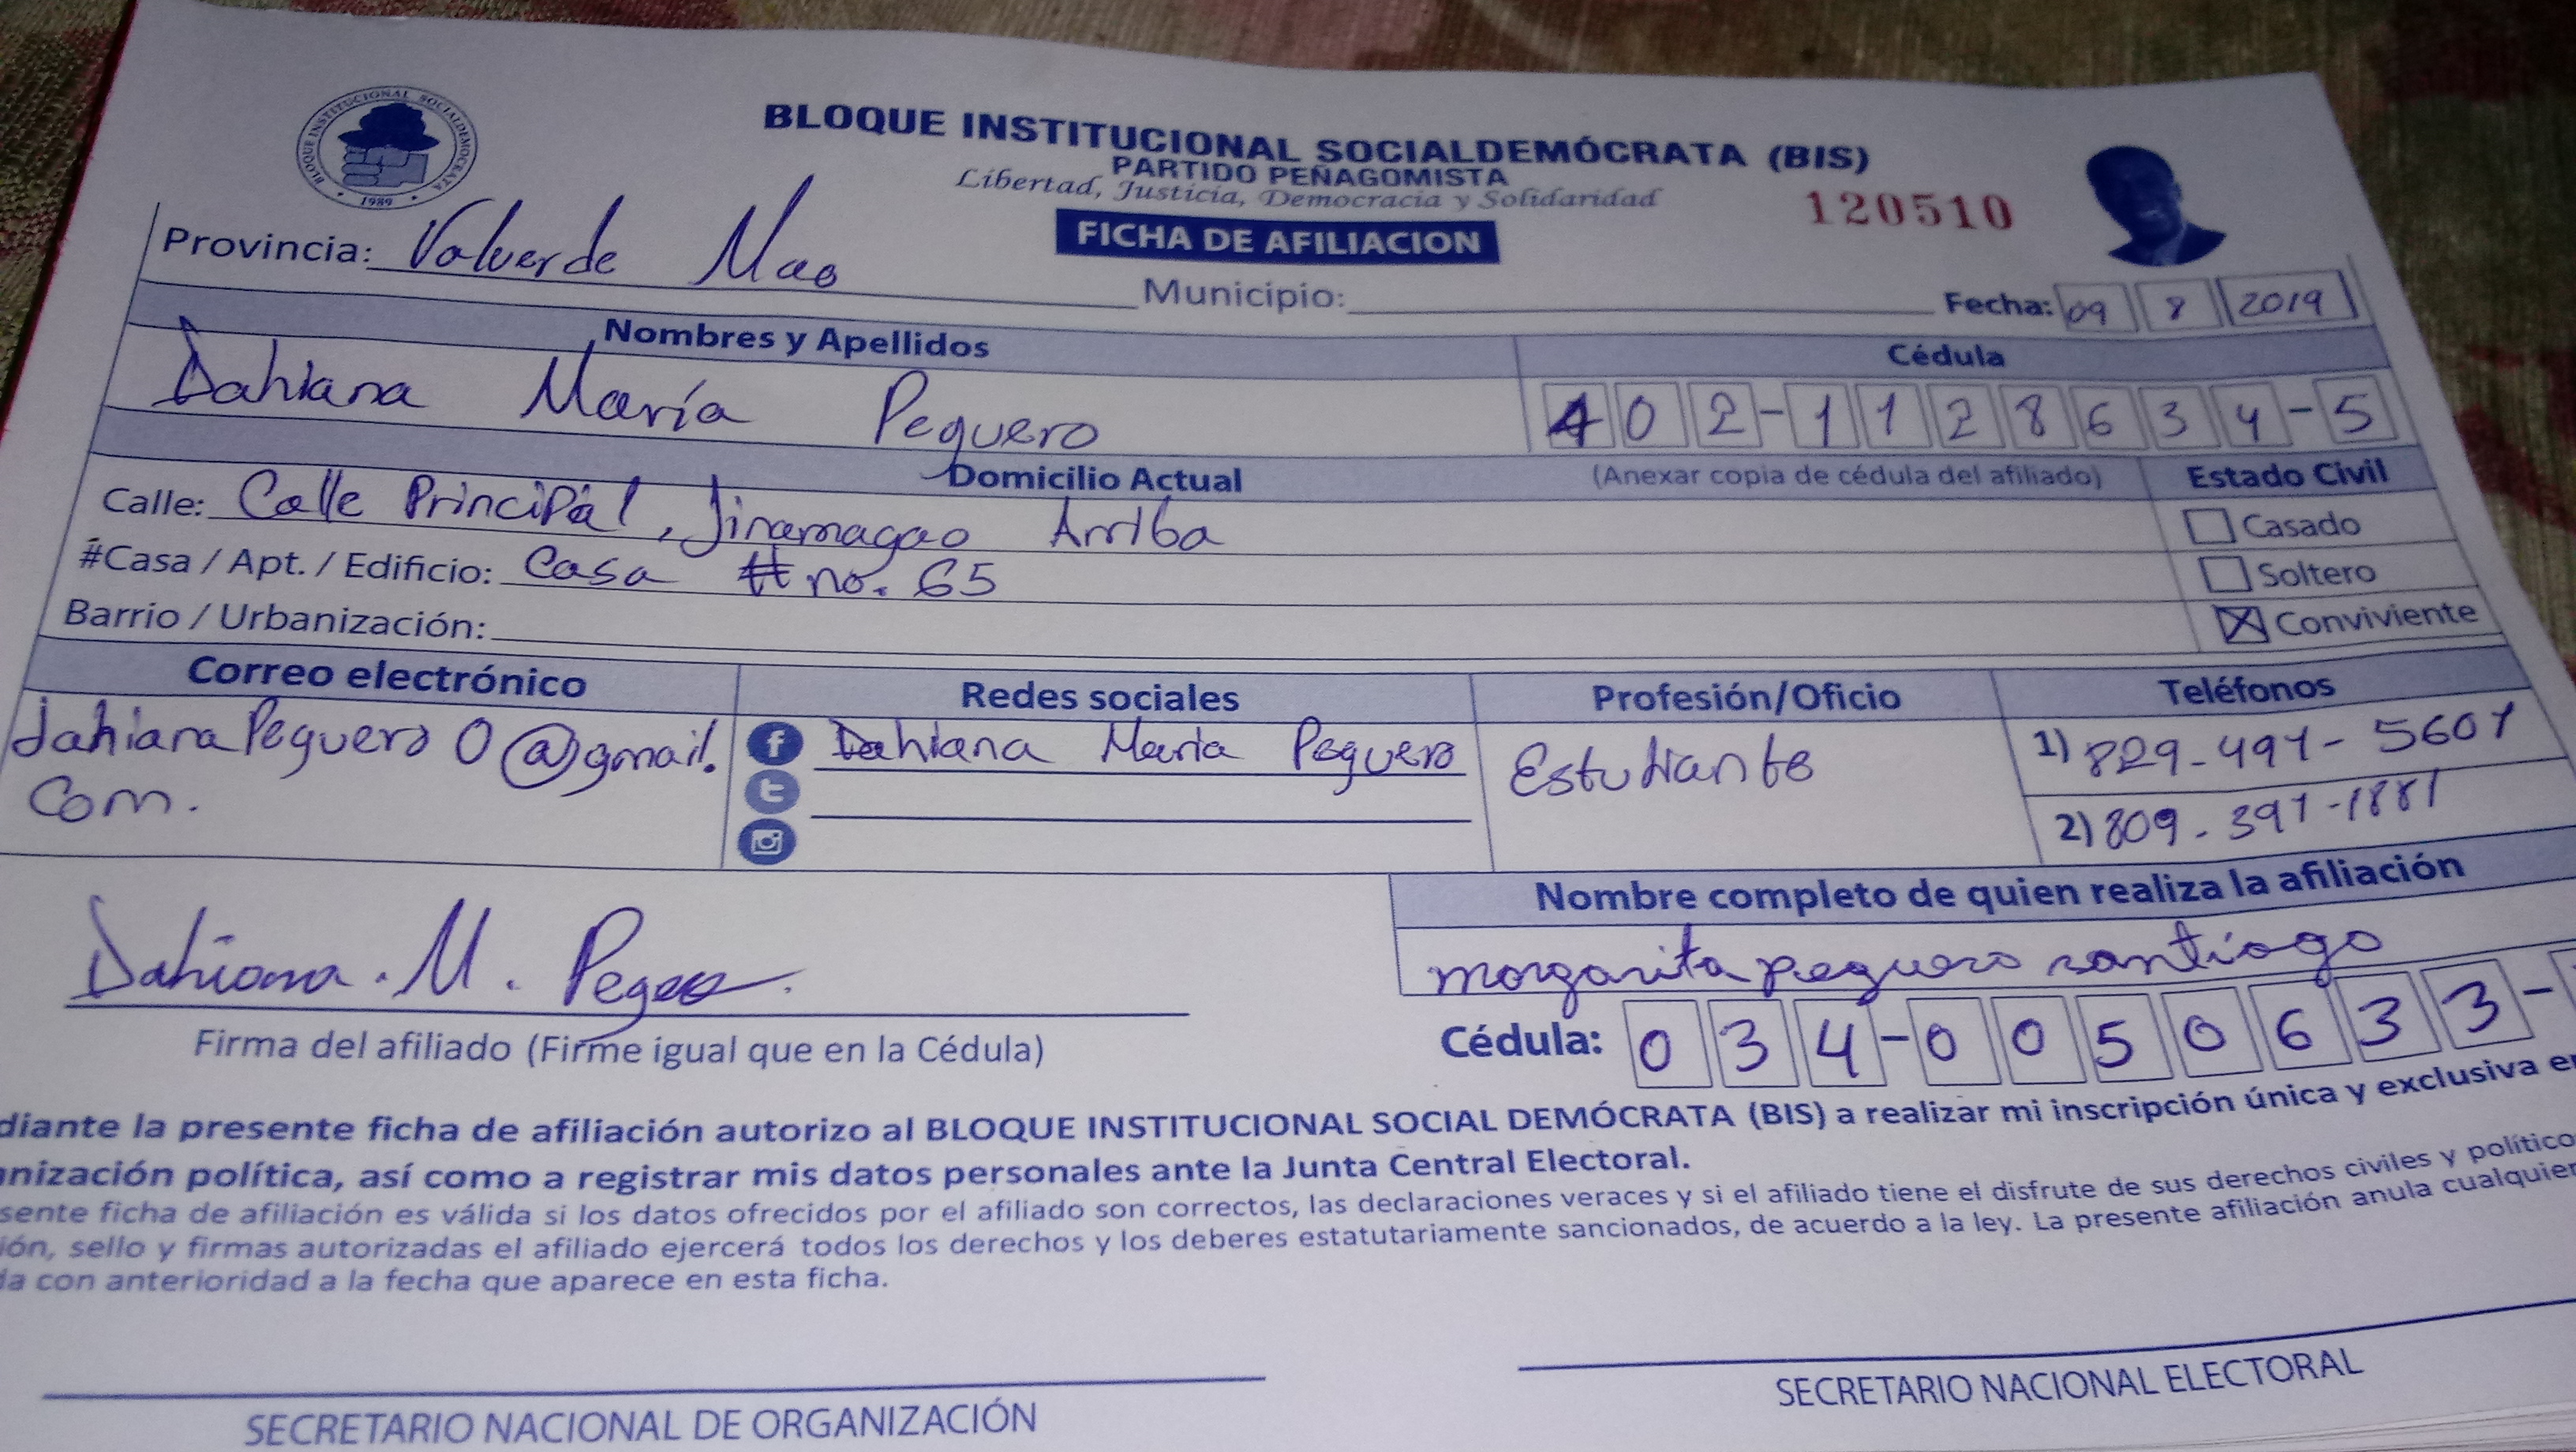 BLOQUE INSTITUCIONAL SOCIALDEMOCRATA
1989
BLOQUE INSTITUCIONAL SOCIALDEMÓCRATA (BIS)
PARTIDO PEÑAGOMISTA
Libertad, Justicia, Democracia y Solidaridad
120510
FICHA DE AFILIACION
Provincia: Valverde Mao Municipio: Fecha: 09 8 2019
Nombres y Apellidos Cédula
Dahiana María Peguero 402-1128634-5
Domicilio Actual (Anexar copia de cédula del afiliado) Estado Civil
Calle: Calle Principal, Jinamagao Arriba
Casado
#Casa / Apt. / Edificio: Casa # no. 65
Soltero
Barrio / Urbanización:
Conviviente
Correo electrónico Redes sociales Profesión/Oficio Teléfonos
dahianaPeguero0@gmail. Dahiana María Peguero Estudiante 1) 829-491-5601
Com. 2) 809-391-1881
Nombre completo de quien realiza la afiliación
Dahiana. M. margarita peguero santiago
Firma del afiliado (Firme igual que en la Cédula) Cédula: 034-0050633-
diante la presente ficha de afiliación autorizo al BLOQUE INSTITUCIONAL SOCIAL DEMÓCRATA (BIS) a realizar mi inscripción única y exclusiva e
nización política, así como a registrar mis datos personales ante la Junta Central Electoral.
sente ficha de afiliación es válida si los datos ofrecidos por el afiliado son correctos, las declaraciones veraces y si el afiliado tiene el disfrute de sus derechos civiles y político
ión, sello y firmas autorizadas el afiliado ejercerá todos los derechos y los deberes estatutariamente sancionados, de acuerdo a la ley. La presente afiliación anula cualquier
da con anterioridad a la fecha que aparece en esta ficha.
SECRETARIO NACIONAL DE ORGANIZACIÓN SECRETARIO NACIONAL ELECTORAL